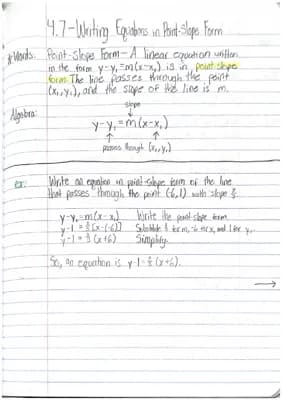 4.7-Writing Equations in Point-Slope Form
*Words: Point-Slope Form - A linear equation written
in the form y-y₁=m(x-x₁) is in point-slope
form. The line passes through the point
(x₁,y₁), and the slope of the line is m.
slope
↓
Algebra: y-y₁=m(x-x₁)
↑ ↑
passes through (x₁,y₁)
ex: Write an equation in point-slope form of the line
that passes through the point (-6,1) with slope
y-y₁=m(x-x₁) Write the point-slope form.
y-1= [x-(-6)] Substitute for m, -6 for x, and 1 for y₁.
y-1= (x+6) Simplify.
So, an equation is y-1= (x+6).
→